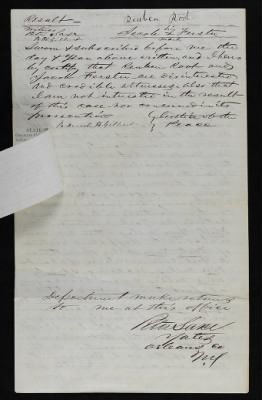 Result — Reuben Root
his
Jacob X Forster
mark
Sworn & subscribed before me the
day & year above written, and I here
by certify that Reuben Root and
Jacob Forster are disinterested
and credible witnesses, also that
I am not interested in the result
of this case nor concerned in its
prosecution
Peace
Department make returns
to me at this office
Yates
Orleans Co
N.Y.